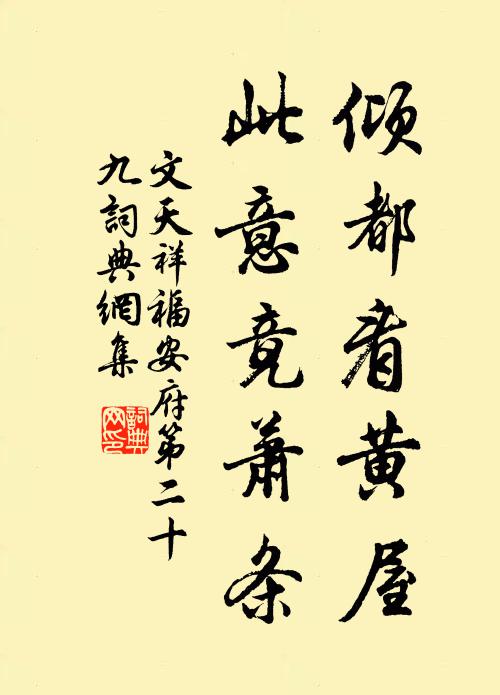 倾都看黄屋
此意竟萧条
文天祥福安府第二十
九詞典網集
詞典
网印